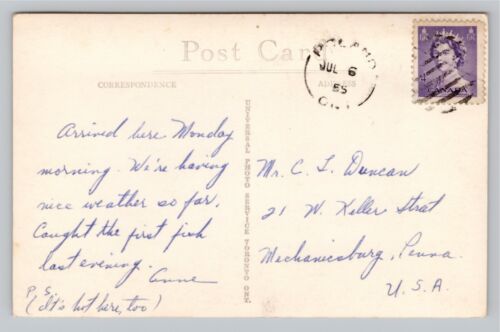 Post Car
CORRESPONDENCE
ADDRESS
JUL 6
55
ONT
CANADA
Arrived here Monday
morning. We're having
nice weather so far.
Caught the first fish
last evening.
Anne
P.S.
(It's hot here, too)
UNIVERSAL PHOTO SERVICE TORONTO ONT.
Mr. C. L. Duncan
21 W. Keller Street
Mechanicsburg, Penna.
U.S.A.